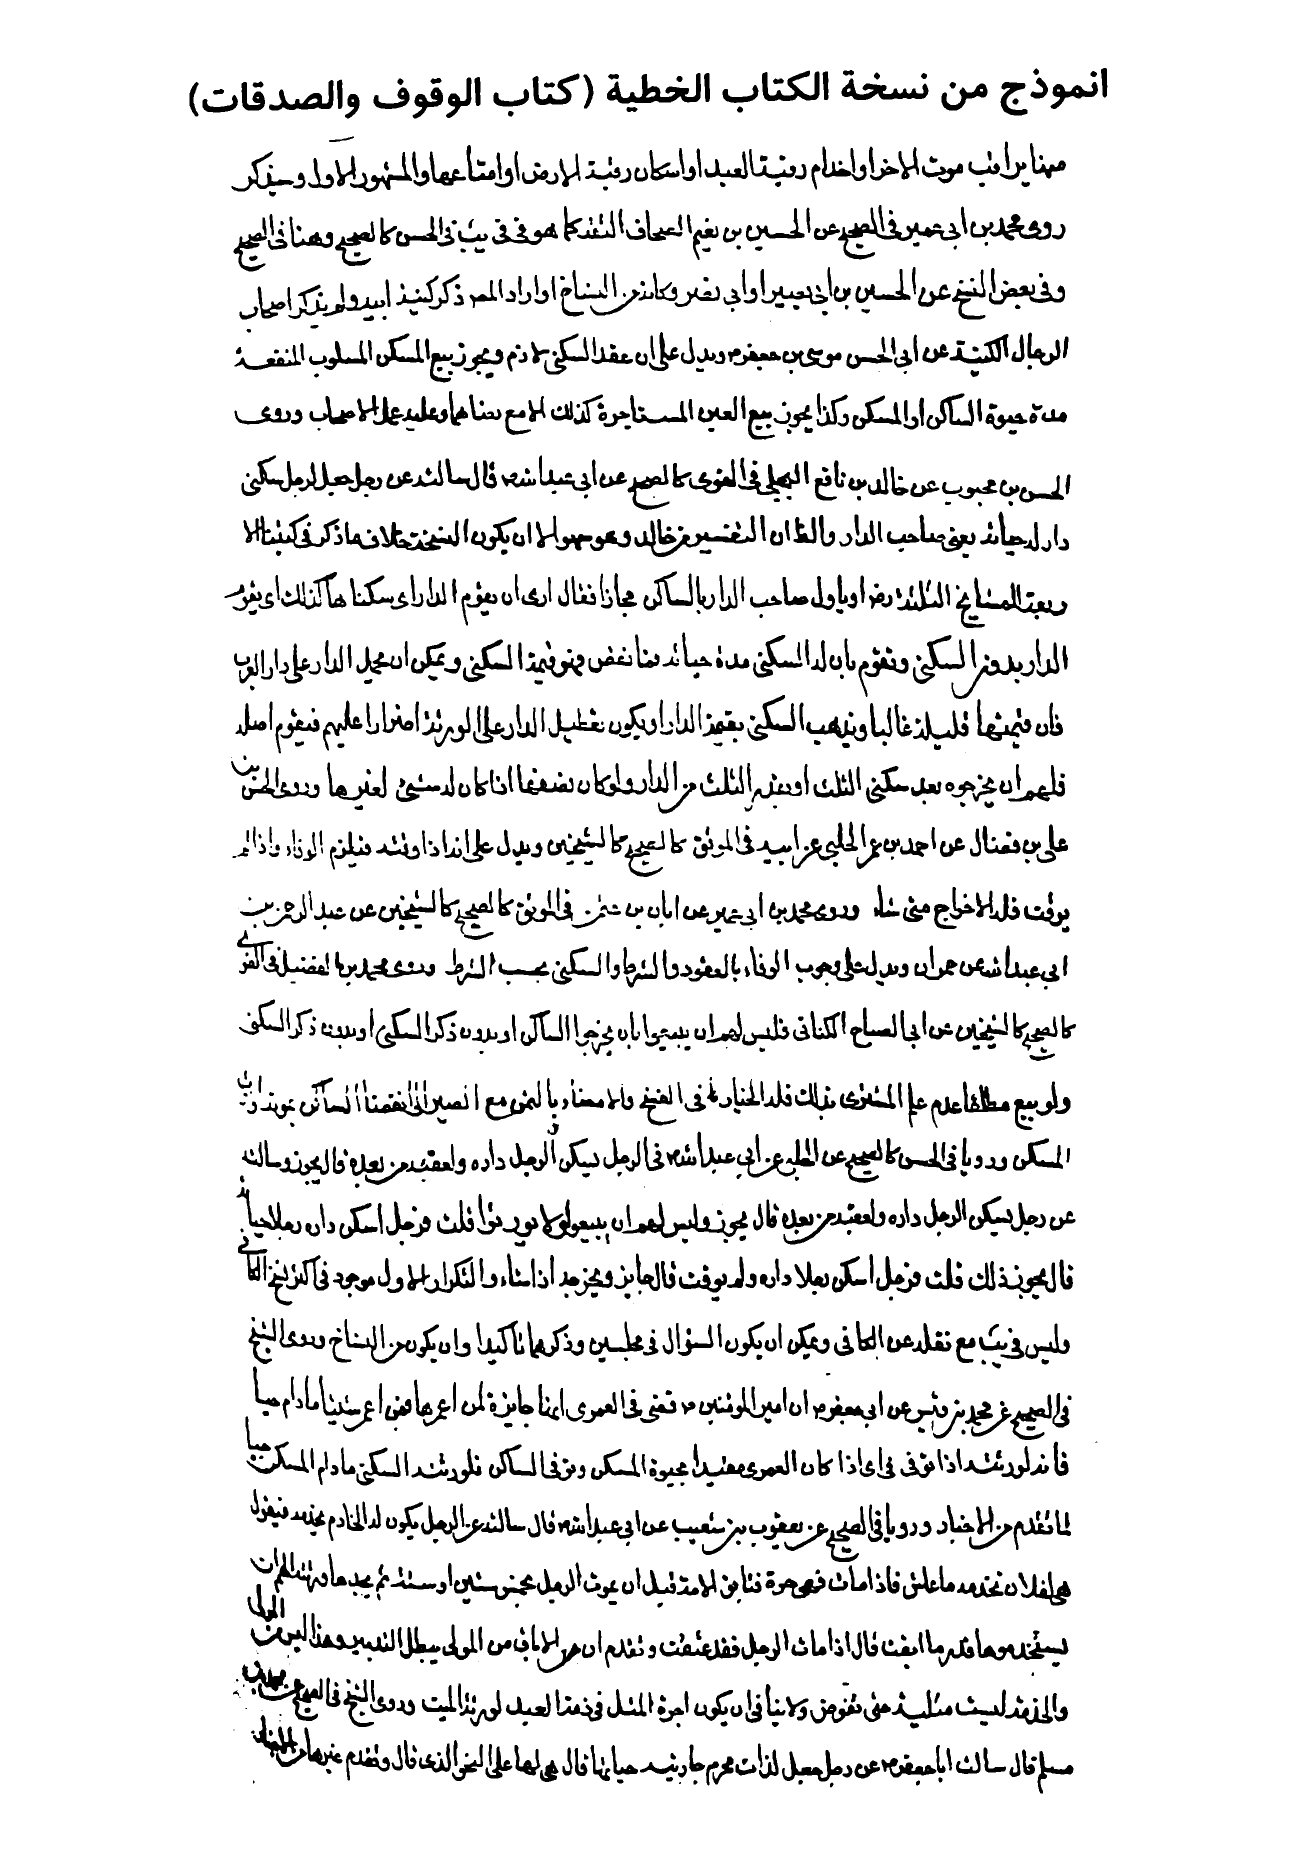 انموذج من نسخة الكتاب الخطية (كتاب الوقوف والصدقات)
منهما يراقب موت الاخر او اخدام رقبة العبد او اسكان رقبة الارض او امتاعها والمشهور الاول وسيذكر
روى محمد بن ابي عمير في الصحيح عن الحسين بن نعيم الصحاف الثقة كما هو في في يب في الحسن كالصحيح وهنا في الصحيح
وفي بعض النسخ عن الحسين بن ابي بصير او ابي نصر وكانه من النساخ او اراد المص ذكر كنية ابيه ولم يذكر اصحاب
الرجال الكنية عن ابي الحسن موسى بن جعفر ويدل على ان عقد السكنى لازم ويجوز بيع المسكن المسلوب المنفعة
مدة حيوة الساكن او المسكن وكذا يجوز بيع العين المستاجرة كذلك الا مع رضاهما وعليه عمل الاصحاب وروى
الحسن بن محبوب عن خالد بن نافع البجلي في القوى كالصحيح عن ابي عبد الله قال سالته عن رجل جعل لرجل سكنى
دار له حياته يعني صاحب الدار والظ ان التفسير من خالد وهو سهو الا ان يكون النسخة خلاف ما ذكر في كتبنا الا
ربعة المشايخ الثلثة رض او ياول صاحب الدار بالساكن مجازا فقال ارى ان يقوم الدار اى سكناها كذلك اى يقوم
الدار بدون السكنى وتقوم بان له السكنى مدة حياته فما نقص فهو قيمة السكنى ويمكن ان يحمل الدار على دار الغرب
فان قيمتها قليلة غالبا ويذهب السكنى بقيمة الدار او يكون تعطيل الدار على الورثة اضرارا عليهم فيقوم اصله
فلهم ان يخرجوه بعد سكنى الثلث او بقدر الثلث من الدار ولو كان نصفها اذا كان له شئ لغيرها وروى الحسن بن
علي بن فضال عن احمد بن عمر الحلبي عن ابيه في الموثق كالصحيح كالشيخين ويدل على انه اذا وقته فيلزم الوفاء واذا لم
يوقت فله الاخراج متى شاء وروى محمد بن ابي عمير عن ابان بن عثمن في الموثق كالصحيح كالشيخين عن عبد الرحمن بن
ابي عبد الله عن حمران ويدل على وجوب الوفاء بالعقود والشرط والسكنى بحسب الشرط وروى محمد بن الفضيل في القوى
كالصحيح كالشيخين عن ابي الصباح الكناني فليس لهم ان يبيعوا بان يخرجوا الساكن او بدون ذكر السكنى او بدون ذكر السكنى
ولو بيع مطلقا عدم علم المشترى بذلك فله الخيار في الفسخ والامضاء بالثمن مع الصبر الى انقضاء الساكن بموته او رب
المسكن ورويا في الحسن كالصحيح عن الحلبي عن ابي عبد الله في الرجل يسكن الرجل داره ولعقبه من بعده قال يجوز وسالته
عن رجل يسكن الرجل داره ولعقبه من بعده قال يجوز وليس لهم ان يبيعوا ولا يورثوا قلت فرجل اسكن داره رجلا حياته
قال يجوز ذلك قلت فرجل اسكن رجلا داره ولم يوقت قال جايز ويخرجه اذا شاء والتكرار الاول موجود في اكثر نسخ الكافي
وليس في يب مع نقله عن الكافي ويمكن ان يكون السؤال في مجلسين وذكرهما تاكيدا وان يكون من النساخ وروى الشيخ
في الصحيح عن محمد بن قيس عن ابي جعفر ان امير المؤمنين قضى في العمرى انها جايزة لمن اعمرها فمن اعمر شيئا ما دام حيا
فانه لورثته اذا توفى في اى اذا كان العمرى مقيدا بحيوة المسكن وتوفى الساكن فلورثته السكنى مادام المسكن حيا
لما تقدم من الاخبار ورويا في الصحيح عن يعقوب بن شعيب عن ابي عبد الله قال سالته عن الرجل يكون له الخادم يخدمه فيقول
هى لفلان تخدمه ما عاش فاذا مات فهى حرة فتابق الامة قبل ان يموت الرجل بخمس سنين او ستة ثم يجدها ورثته الهم ان
يستخدموها قدر ما ابقت قال اذا مات الرجل فقد عتقت وتقدم ان الاباق من المولى يبطل التدبير وهذا ليس من المولى
والخدمة ليست مثلية حتى تقوض ولا ينافي ان يكون اجرة المثل في ذمة العبد لورثة الميت وروى الشيخ في الصحيح عن محمد بن
مسلم قال سالت ابا جعفر عن رجل جعل لذات محرم جاريته حياتها قال هى لها على النحو الذى قال وتقدم غيرها من الاخبار